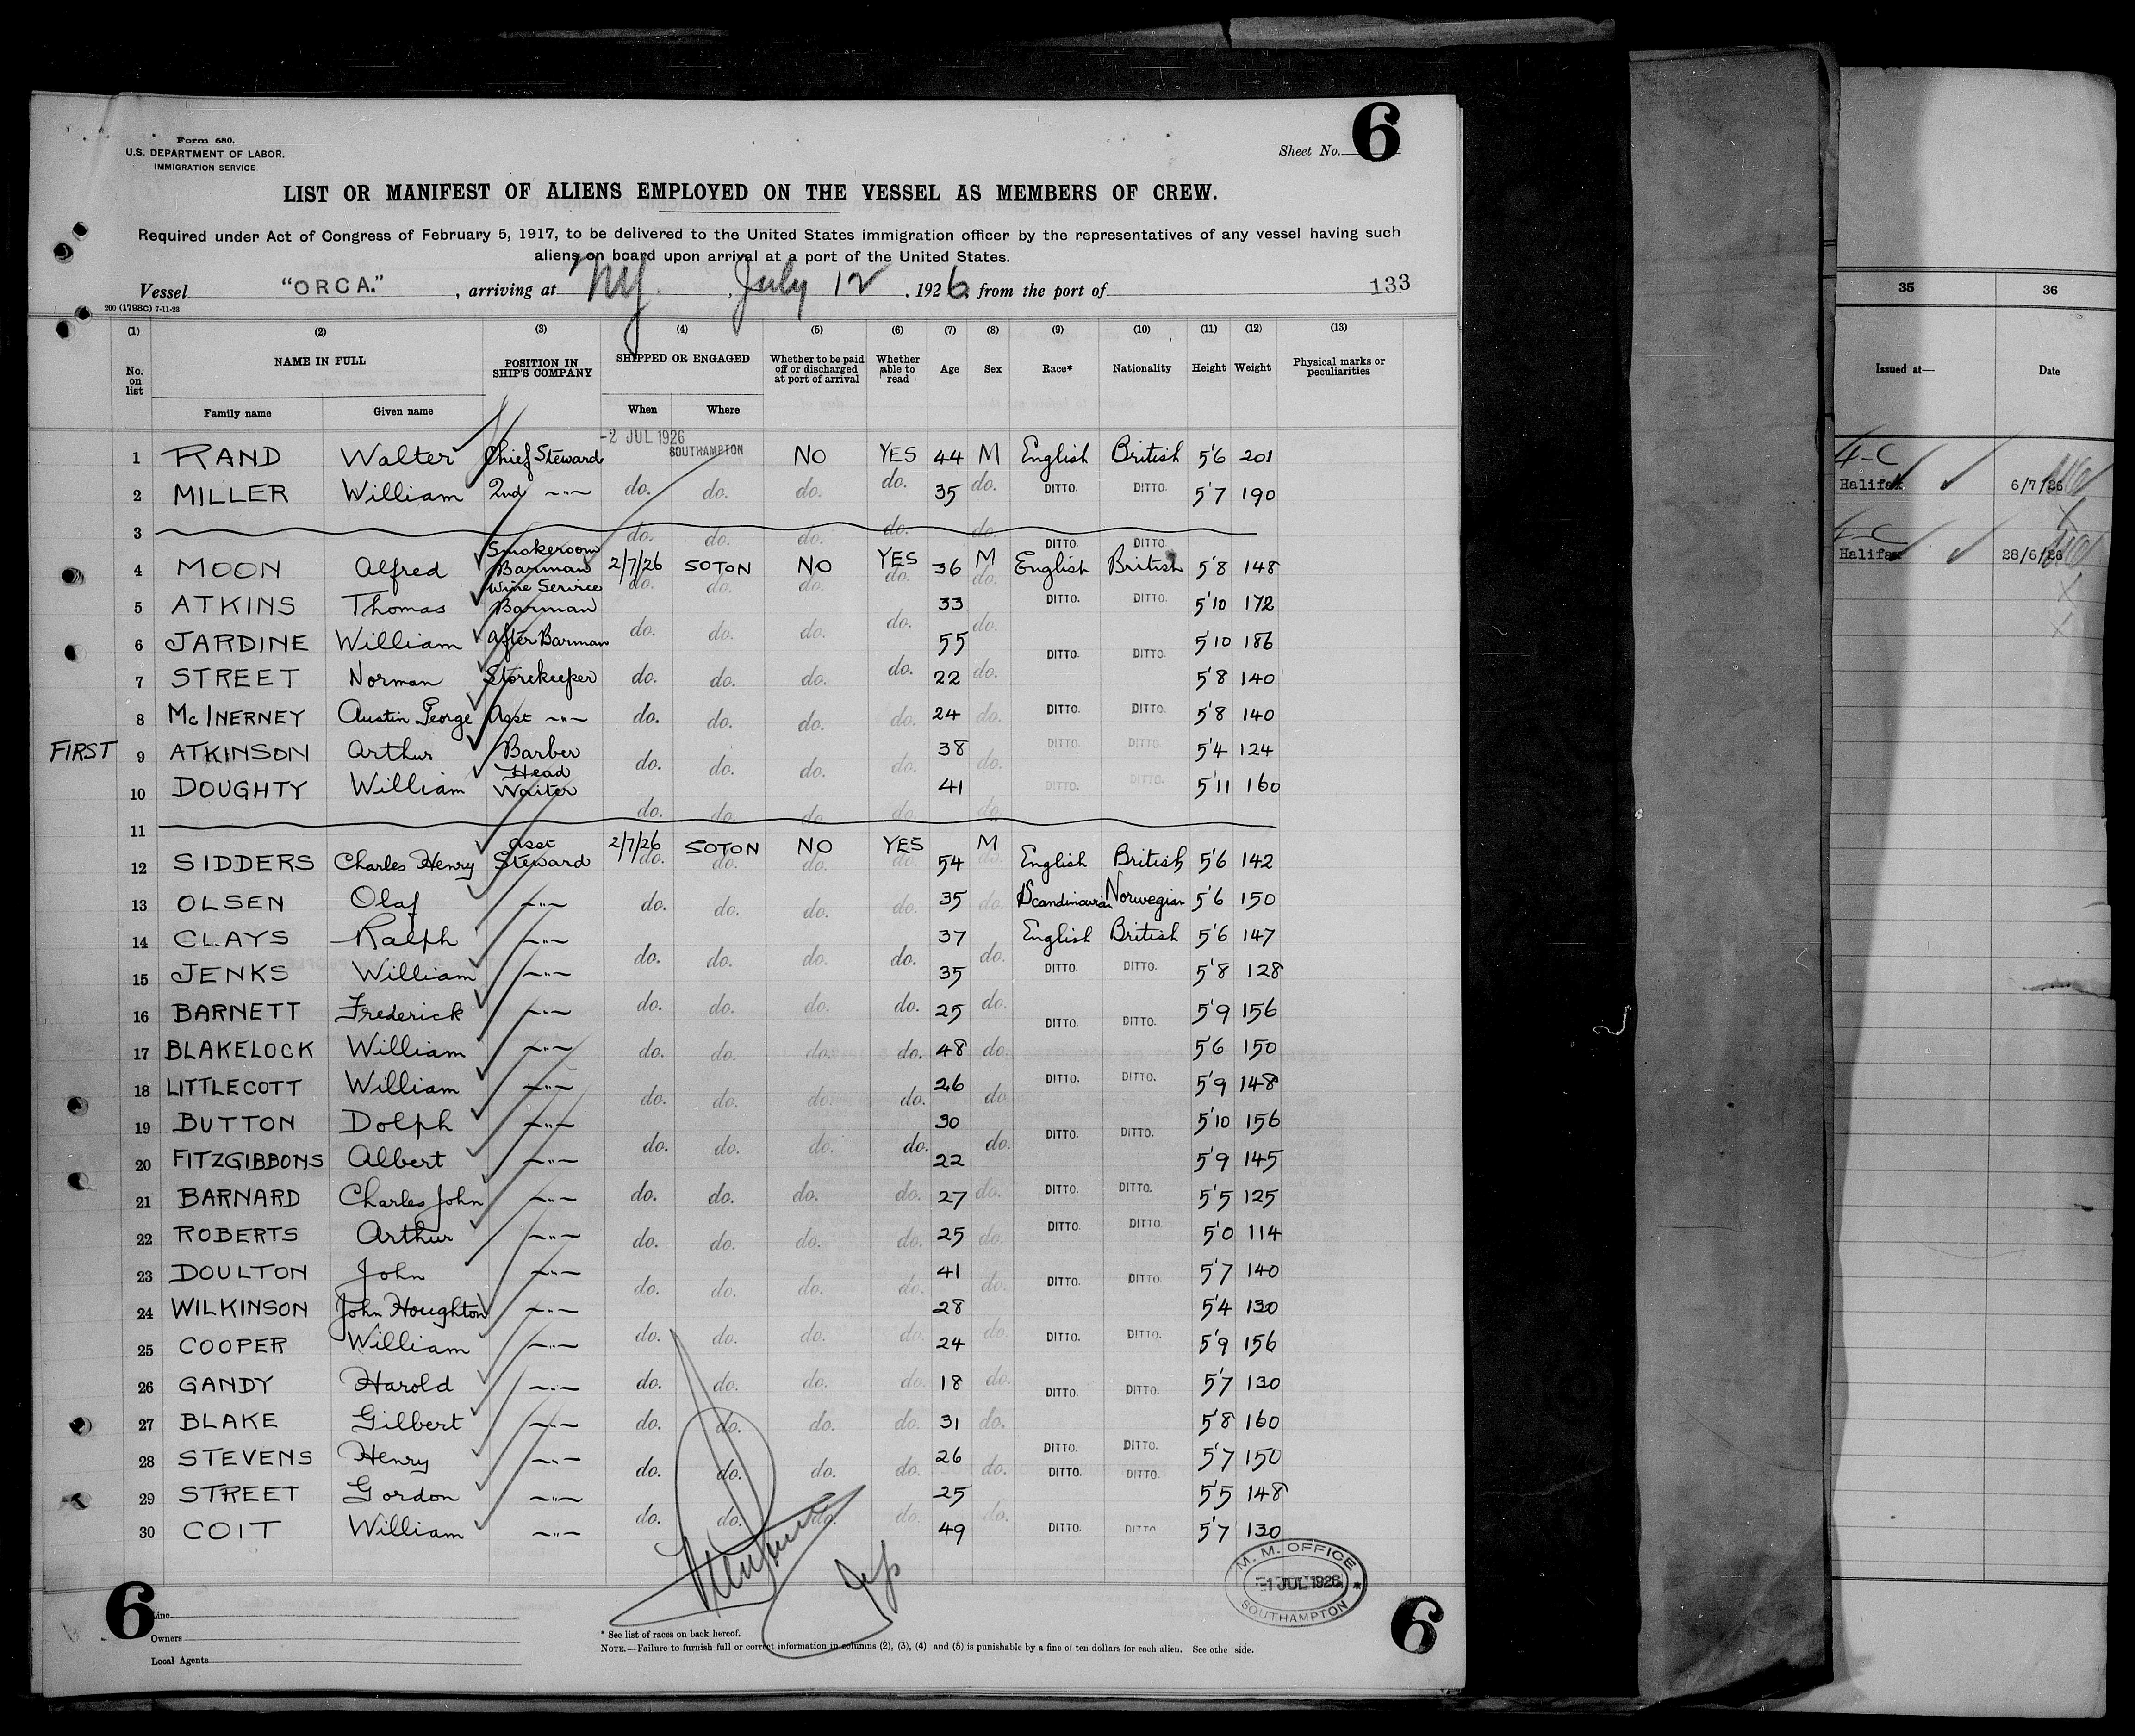 Form 680.
U.S. DEPARTMENT OF LABOR.
IMMIGRATION SERVICE
Sheet No. 6
LIST OR MANIFEST OF ALIENS EMPLOYED ON THE VESSEL AS MEMBERS OF CREW.
Required under Act of Congress of February 5, 1917, to be delivered to the United States immigration officer by the representatives of any vessel having such
aliens on board upon arrival at a port of the United States.
Vessel "ORCA." , arriving at NY. , July 12 , 1926 from the port of 133
200 (1798C) 7-11-23
(1) (2) (3) (4) (5) (6) (7) (8) (9) (10) (11) (12) (13)
No. on list NAME IN FULL POSITION IN SHIP'S COMPANY SHIPPED OR ENGAGED Whether to be paid off or discharged at port of arrival Whether able to read Age Sex Race* Nationality Height Weight Physical marks or peculiarities
Family name Given name When Where
-2 JUL 1926 SOUTHAMPTON
1 RAND Walter Chief Steward NO YES 44 M English British 5'6 201
2 MILLER William 2nd -"- do. do. do. do. 35 do. DITTO. DITTO. 5'7 190
3 do. do. do. do. do. DITTO. DITTO.
4 MOON Alfred Smokeroom Barman 2/7/26 SOTON NO YES 36 M English British 5'8 148
do. do. do. do. do.
5 ATKINS Thomas Wine Service Barman 33 DITTO. DITTO. 5'10 172
6 JARDINE William After Barman do. do. do. do. 55 do. DITTO. DITTO. 5'10 186
7 STREET Norman Storekeeper do. do. do. do. 22 do. 5'8 140
8 McINERNEY Austin George Asst -"- do. do. do. do. 24 do. DITTO. DITTO. 5'8 140
FIRST 9 ATKINSON Arthur Barber do. do. do. do. 38 do. DITTO. DITTO. 5'4 124
10 DOUGHTY William Head Waiter do. do. do. do. 41 do. DITTO. DITTO. 5'11 160
11
12 SIDDERS Charles Henry Asst Steward 2/7/26 SOTON NO YES 54 M English British 5'6 142
do. do. do. do. do.
13 OLSEN Olaf -"- do. do. do. do. 35 do. Scandinavian Norwegian 5'6 150
14 CLAYS Ralph -"- do. do. do. do. 37 do. English British 5'6 147
15 JENKS William -"- 35 DITTO. DITTO. 5'8 128
16 BARNETT Frederick -"- do. do. do. do. 25 do. DITTO. DITTO. 5'9 156
17 BLAKELOCK William -"- do. do. do. do. 48 do. 5'6 150
18 LITTLECOTT William -"- do. do. do. do. 26 do. DITTO. DITTO. 5'9 148
19 BUTTON Dolph -"- do. do. do. do. 30 do. DITTO. DITTO. 5'10 156
20 FITZGIBBONS Albert -"- 22 5'9 145
21 BARNARD Charles John -"- do. do. do. do. 27 do. DITTO. DITTO. 5'5 125
22 ROBERTS Arthur -"- do. do. do. do. 25 do. DITTO. DITTO. 5'0 114
23 DOULTON John -"- do. do. do. do. 41 do. DITTO. DITTO. 5'7 140
24 WILKINSON John Houghton -"- 28 5'4 130
25 COOPER William -"- do. do. do. do. 24 do. DITTO. DITTO. 5'9 156
26 GANDY Harold -"- do. do. do. do. 18 do. DITTO. DITTO. 5'7 130
27 BLAKE Gilbert -"- do. do. do. do. 31 do. 5'8 160
28 STEVENS Henry -"- do. do. do. do. 26 do. DITTO. DITTO. 5'7 150
DITTO. DITTO.
29 STREET Gordon -"- do. do. do. do. 25 do. 5'5 148
30 COIT William -"- 49 DITTO. DITTO 5'7 130
M. M. OFFICE
-1 JUL 1926
SOUTHAMPTON
6 6
Line
Owners
Local Agents
* See list of races on back hereof.
NOTE.—Failure to furnish full or correct information in columns (2), (3), (4) and (5) is punishable by a fine of ten dollars for each alien. See othe side.
35 36
Issued at— Date
4-C
Halifax 6/7/26
4-C
Halifax 28/6/26